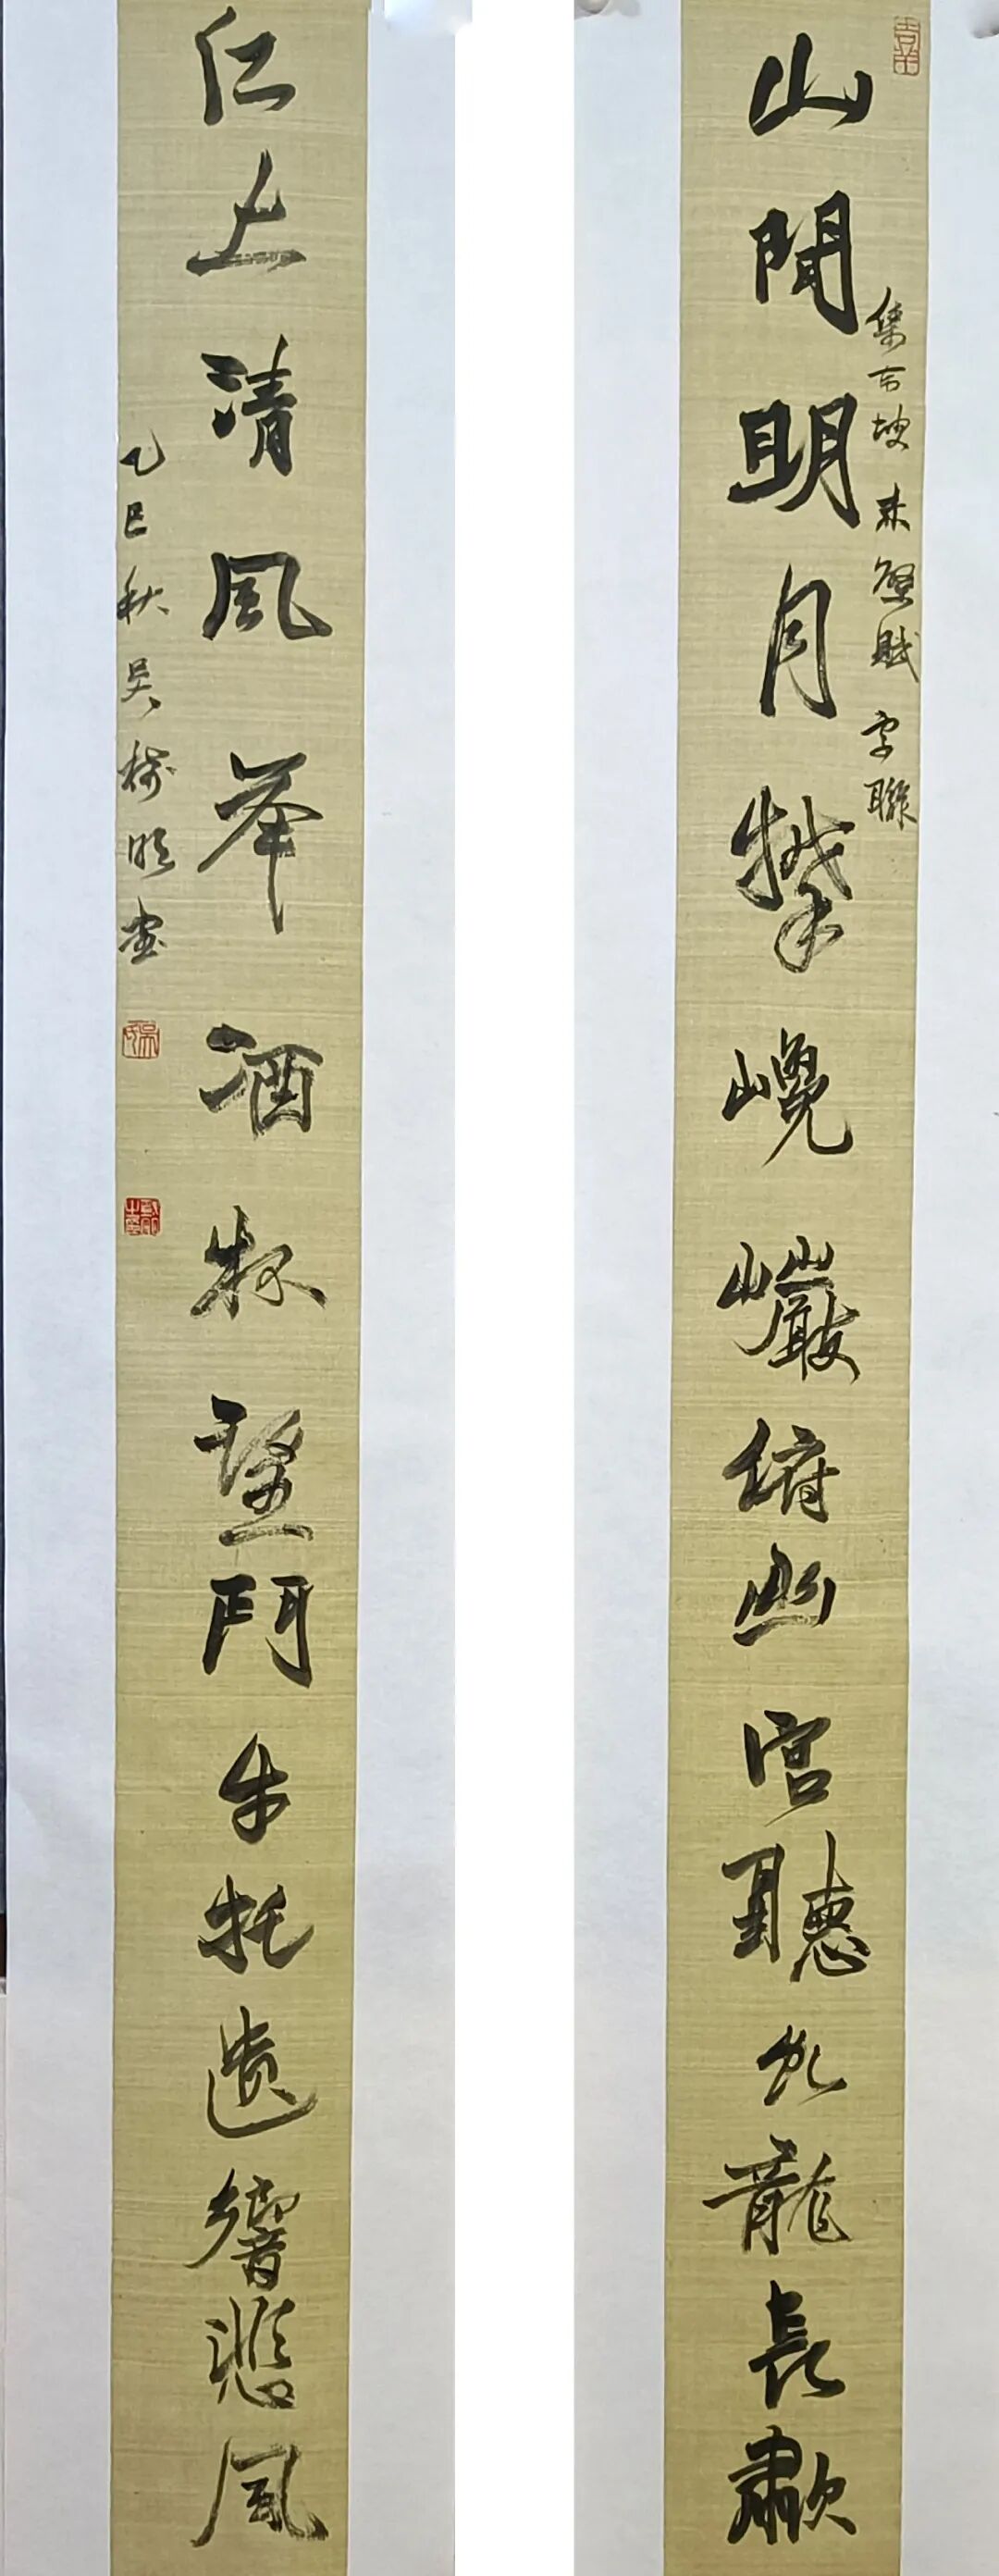 山間明月攀巉巖俯幽宮聽虬龍長歗
集东坡赤壁賦字聯
江上清風举酒杯望鬥牛托遺響悲風
乙巳秋吴明書